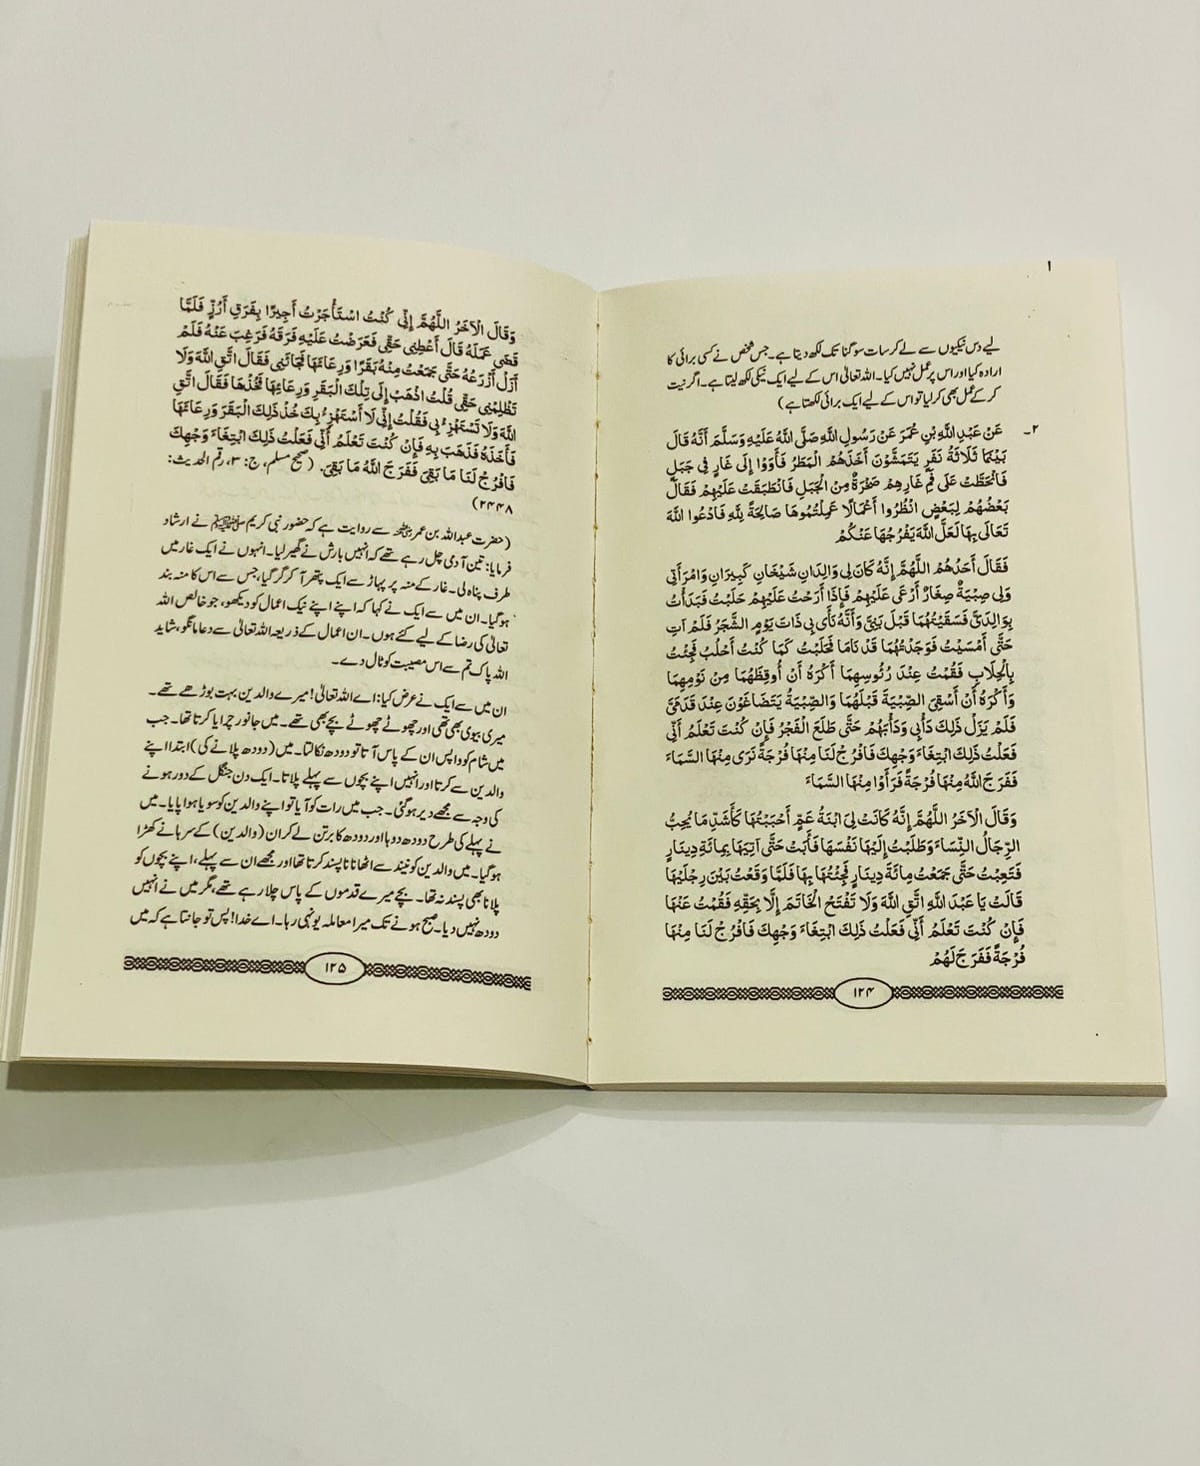 لیے دس نیکیوں سے لے کر سات سو گنا تک لکھ دیتا ہے۔ جس شخص نے کسی برائی کا
ارادہ کیا اور اس پر عمل نہیں کیا۔ اللہ تعالیٰ اس کے لیے ایک نیکی لکھ لیتا ہے۔ اگر نیت
کر کے عمل بھی کر لیا تو اس کے لیے ایک برائی لکھتا ہے)
۲۔ عَنْ عَبْدِ اللّٰهِ بْنِ عُمَرَ عَنْ رَسُولِ اللّٰهِ صَلَّى اللّٰهُ عَلَيْهِ وَسَلَّمَ أَنَّهُ قَالَ
بَيْنَمَا ثَلَاثَةُ نَفَرٍ يَتَمَشَّوْنَ أَخَذَهُمُ الْمَطَرُ فَأَوَوْا إِلَى غَارٍ فِي جَبَلٍ
فَانْحَطَّتْ عَلَى فَمِ غَارِهِمْ صَخْرَةٌ مِنَ الْجَبَلِ فَانْطَبَقَتْ عَلَيْهِمْ فَقَالَ
بَعْضُهُمْ لِبَعْضٍ انْظُرُوا أَعْمَالًا عَمِلْتُمُوهَا صَالِحَةً لِلّٰهِ فَادْعُوا اللّٰهَ
تَعَالَى بِهَا لَعَلَّ اللّٰهَ يَفْرُجُهَا عَنْكُمْ
فَقَالَ أَحَدُهُمْ اللّٰهُمَّ إِنَّهُ كَانَ لِي وَالِدَانِ شَيْخَانِ كَبِيرَانِ وَامْرَأَتِي
وَلِي صِبْيَةٌ صِغَارٌ أَرْعَى عَلَيْهِمْ فَإِذَا أَرَحْتُ عَلَيْهِمْ حَلَبْتُ فَبَدَأْتُ
بِوَالِدَيَّ فَسَقَيْتُهُمَا قَبْلَ بَنِيَّ وَأَنَّهُ نَأَى بِي ذَاتَ يَوْمٍ الشَّجَرُ فَلَمْ آتِ
حَتَّى أَمْسَيْتُ فَوَجَدْتُهُمَا قَدْ نَامَا فَحَلَبْتُ كَمَا كُنْتُ أَحْلُبُ فَجِئْتُ
بِالْحِلَابِ فَقُمْتُ عِنْدَ رُئُوسِهِمَا أَكْرَهُ أَنْ أُوقِظَهُمَا مِنْ نَوْمِهِمَا
وَأَكْرَهُ أَنْ أَسْقِيَ الصِّبْيَةَ قَبْلَهُمَا وَالصِّبْيَةُ يَتَضَاغَوْنَ عِنْدَ قَدَمَيَّ
فَلَمْ يَزَلْ ذَلِكَ دَأْبِي وَدَأْبَهُمْ حَتَّى طَلَعَ الْفَجْرُ فَإِنْ كُنْتَ تَعْلَمُ أَنِّي
فَعَلْتُ ذَلِكَ ابْتِغَاءَ وَجْهِكَ فَافْرُجْ لَنَا مِنْهَا فُرْجَةً نَرَى مِنْهَا السَّمَاءَ
فَفَرَجَ اللّٰهُ مِنْهَا فُرْجَةً فَرَأَوْا مِنْهَا السَّمَاءَ
وَقَالَ الْآخَرُ اللّٰهُمَّ إِنَّهُ كَانَتْ لِيَ ابْنَةُ عَمٍّ أَحْبَبْتُهَا كَأَشَدِّ مَا يُحِبُّ
الرِّجَالُ النِّسَاءَ وَطَلَبْتُ إِلَيْهَا نَفْسَهَا فَأَبَتْ حَتَّى آتِيَهَا بِمِائَةِ دِينَارٍ
فَتَعِبْتُ حَتَّى جَمَعْتُ مِائَةَ دِينَارٍ فَجِئْتُهَا بِهَا فَلَمَّا وَقَعْتُ بَيْنَ رِجْلَيْهَا
قَالَتْ يَا عَبْدَ اللّٰهِ اتَّقِ اللّٰهَ وَلَا تَفْتَحْ الْخَاتَمَ إِلَّا بِحَقِّهِ فَقُمْتُ عَنْهَا
فَإِنْ كُنْتَ تَعْلَمُ أَنِّي فَعَلْتُ ذَلِكَ ابْتِغَاءَ وَجْهِكَ فَافْرُجْ لَنَا مِنْهَا
فُرْجَةً فَفَرَجَ لَهُمْ
۱۲۴
وَقَالَ الْآخَرُ اللّٰهُمَّ إِنِّي كُنْتُ اسْتَأْجَرْتُ أَجِيرًا بِفَرَقِ أَرُزٍّ فَلَمَّا
قَضَى عَمَلَهُ قَالَ أَعْطِنِي حَقِّي فَعَرَضْتُ عَلَيْهِ فَرَقَهُ فَرَغِبَ عَنْهُ فَلَمْ
أَزَلْ أَزْرَعُهُ حَتَّى جَمَعْتُ مِنْهُ بَقَرًا وَرِعَائَهَا فَجَائَنِي فَقَالَ اتَّقِ اللّٰهَ وَلَا
تَظْلِمْنِي حَقِّي قُلْتُ اذْهَبْ إِلَى تِلْكَ الْبَقَرِ وَرِعَائِهَا فَخُذْهَا فَقَالَ اتَّقِ
اللّٰهَ وَلَا تَسْتَهْزِئْ بِي فَقُلْتُ إِنِّي لَا أَسْتَهْزِئُ بِكَ خُذْ ذَلِكَ الْبَقَرَ وَرِعَائَهَا
فَأَخَذَهُ فَذَهَبَ بِهِ فَإِنْ كُنْتَ تَعْلَمُ أَنِّي فَعَلْتُ ذَلِكَ ابْتِغَاءَ وَجْهِكَ
فَافْرُجْ لَنَا مَا بَقِيَ فَفَرَجَ اللّٰهُ مَا بَقِيَ۔ (صحیح مسلم، ج: ۳، رقم الحدیث:
۲۴۴۸)
(حضرت عبداللہ بن عمرؓ سے روایت ہے کہ حضور نبی کریم ﷺ نے ارشاد
فرمایا: تین آدمی چل رہے تھے کہ انہیں بارش نے گھیر لیا۔ انہوں نے ایک غار میں
طرف پناہ لی۔ غار کے منہ پر پہاڑ سے ایک پتھر آ کر گر گیا، جس سے اس کا منہ بند
ہو گیا۔ ان میں سے ایک نے کہا کہ اپنے اپنے نیک اعمال کو دیکھو، جو خالص اللہ
تعالیٰ کی رضا کے لیے کئے ہوں۔ ان اعمال کے ذریعہ اللہ تعالیٰ سے دعا مانگو، شاید
اللہ پاک تم سے اس مصیبت کو ٹال دے۔
ان میں سے ایک نے عرض کیا: اے اللہ تعالیٰ! میرے والدین بہت بوڑھے تھے۔
میری بیوی بھی تھی اور چھوٹے چھوٹے بچے بھی تھے۔ میں جانور چرایا کرتا تھا۔ جب
میں شام کو واپس ان کے پاس آتا تو دودھ نکالتا۔ میں (دودھ پلانے کی) ابتدا اپنے
والدین سے کرتا اور انہیں اپنے بچوں سے پہلے پلاتا۔ ایک دن جنگل کے دور ہونے
کی وجہ سے مجھے دیر ہو گئی۔ جب میں رات کو آیا تو اپنے والدین کو سویا ہوا پایا۔ میں
نے پہلے کی طرح دودھ دوہا اور دودھ کا برتن لے کر ان (والدین) کے سرہانے کھڑا
ہو گیا۔ میں والدین کو نیند سے اٹھانا ناپسند کرتا تھا اور مجھے ان سے پہلے، اپنے بچوں کو
پلانا بھی پسند نہ تھا۔ بچے میرے قدموں کے پاس چلا رہے تھے، مگر میں نے انہیں
دودھ نہیں دیا۔ صبح ہونے تک میرا معاملہ یونہی رہا۔ اے خدا! پس تو جانتا ہے کہ میں
۱۲۵